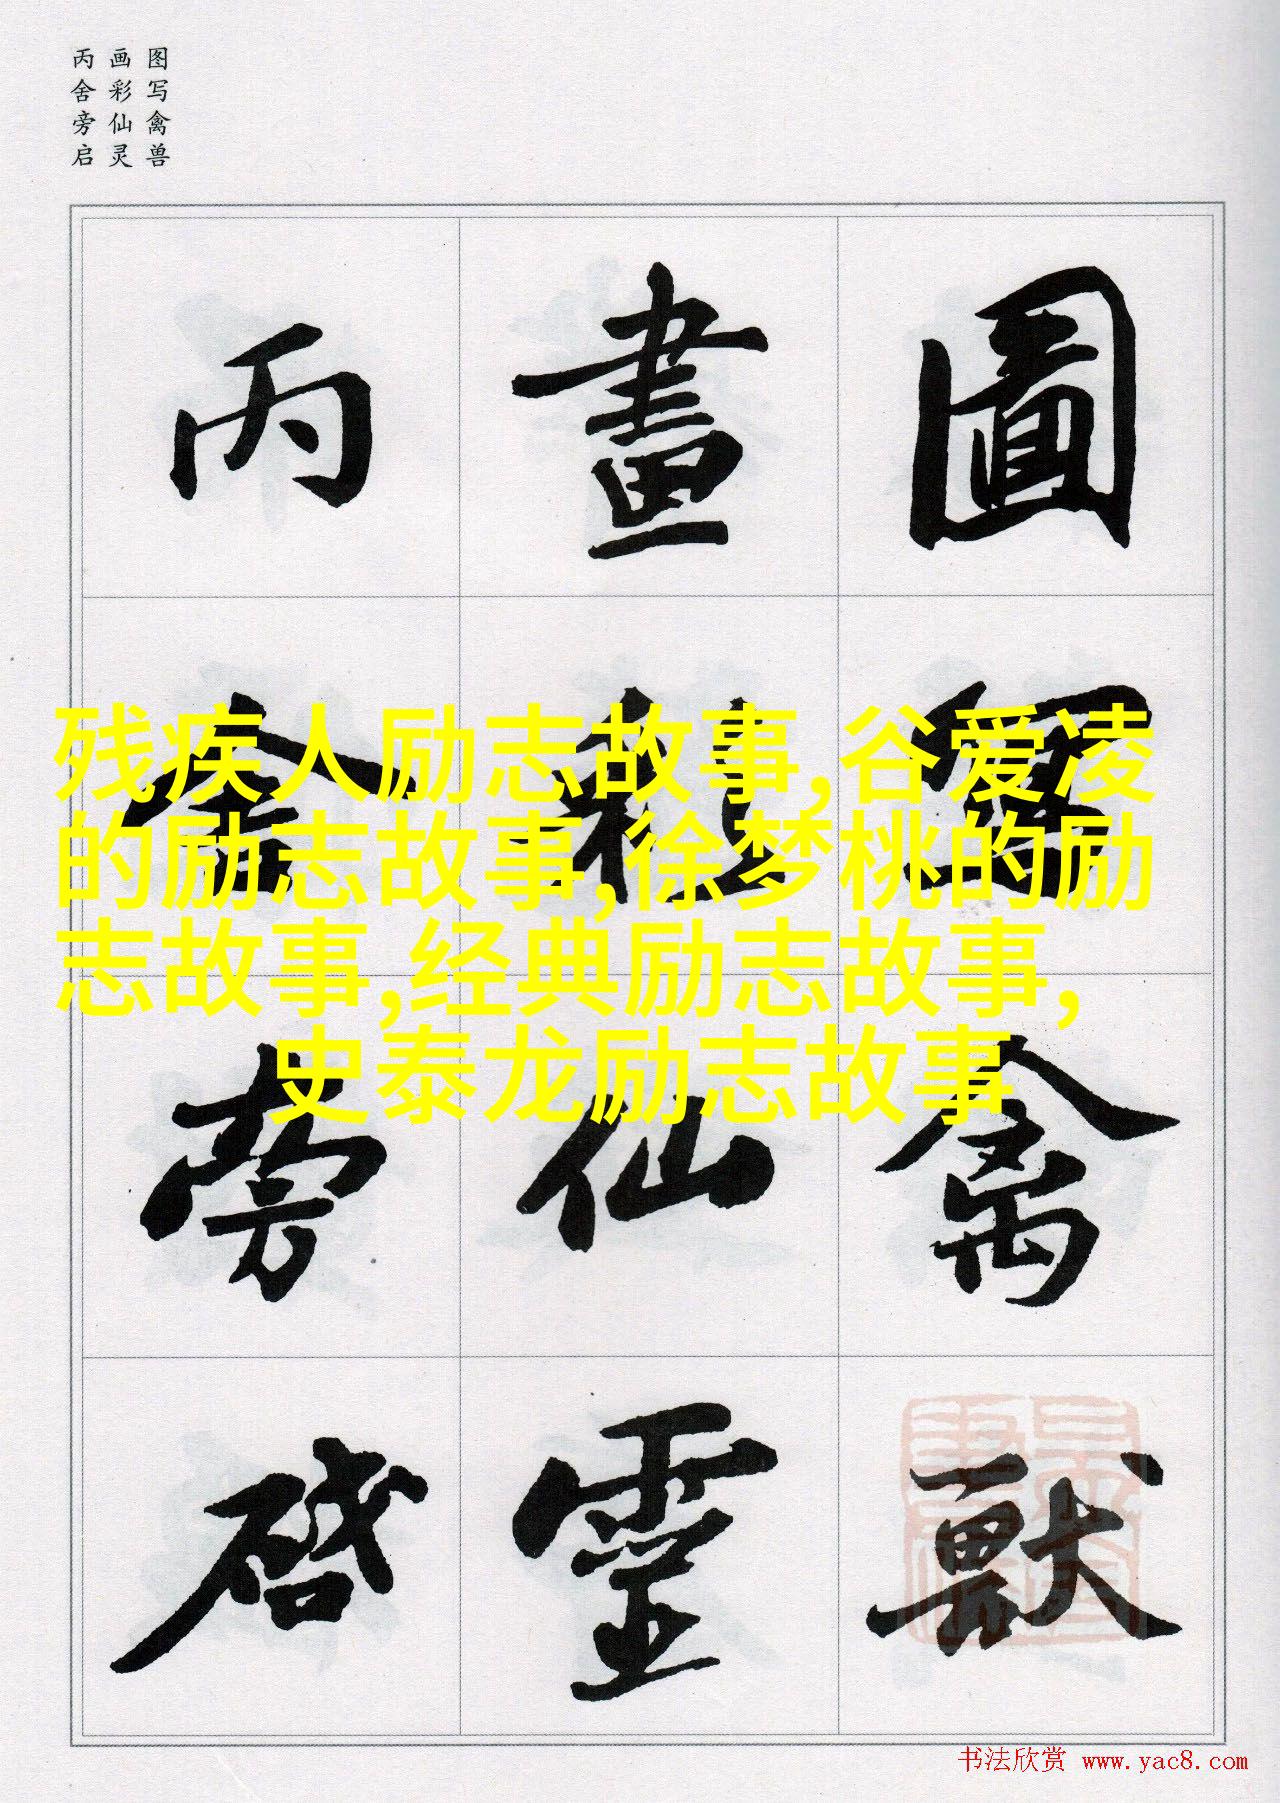 图写禽兽
画彩仙灵
丙舍旁启
圖寫禽獸
畫彩仙靈
丙舍旁啓
残疾人励志故事,谷爱凌
的励志故事,徐梦桃的励
志故事,经典励志故事,
史泰龙励志故事
书法欣赏 www.yac8.com